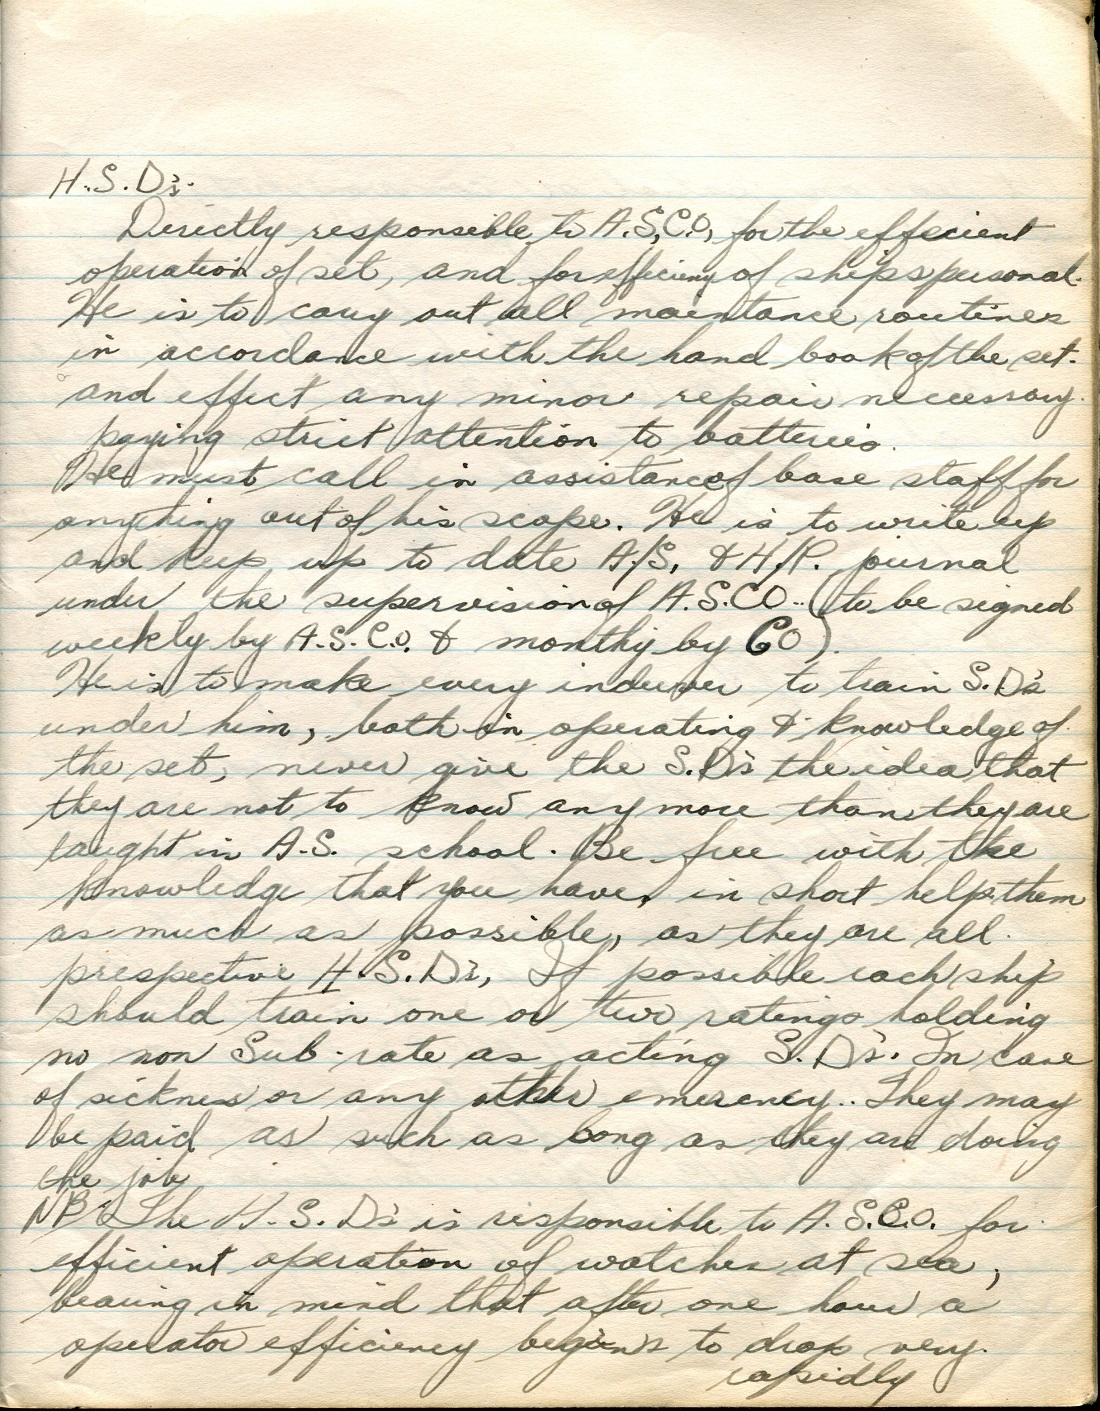 H.S.D's.
Directly responsible to A.S.C.O. for the effecient
operation of set, and for efficieny of ships personal.
He is to cary out all maintance routines
in accordance with the hand book of the set.
and effect any minor repair neccessary.
paying strict attention to batteries.
He must call in assistance of base staff for
anything out of his scope. He is to write up
and keep up to date A/S. & H/P. journal
under the supervision of A.S.CO.. (to be signed
weekly by A.S.C.O. & monthy by CO).
He is to make every indever to train S.D's
under him, both in operating & knowledge of
the set, never give the S.D's the idea that
they are not to know any more than they are
taught in A.S. school. Be free with the
knowledge that you have, in short help them
as much as possible, as they are all
prespective H.S.D's, If possible each ship
should train one or two ratings holding
no non Sub-rate as acting S.D's. In case
of sickness or any other emerency.. They may
be paid as such as long as they are doing
the job
NB The H.S.D's is responsible to A.S.C.O. for
efficient operation of watches at sea,
bearing in mind that after one hour a
operator efficiency begins to drop very
rapidly